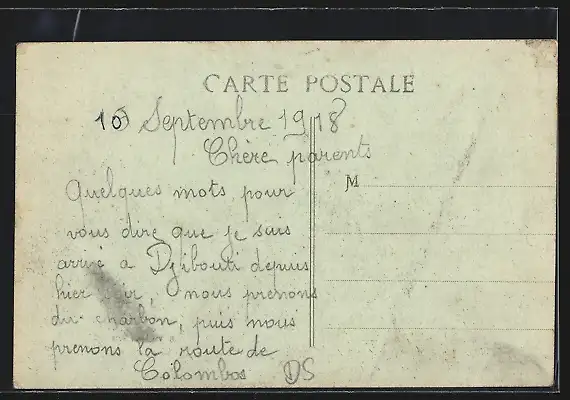 CARTE POSTALE
10 Septembre 1918
Chère parents
M
Quelques mots pour
vous dire que je suis
arrivé a Djibouti depuis
hier soir, nous prenons
du charbon, puis nous
prenons la route de
Colombos DS